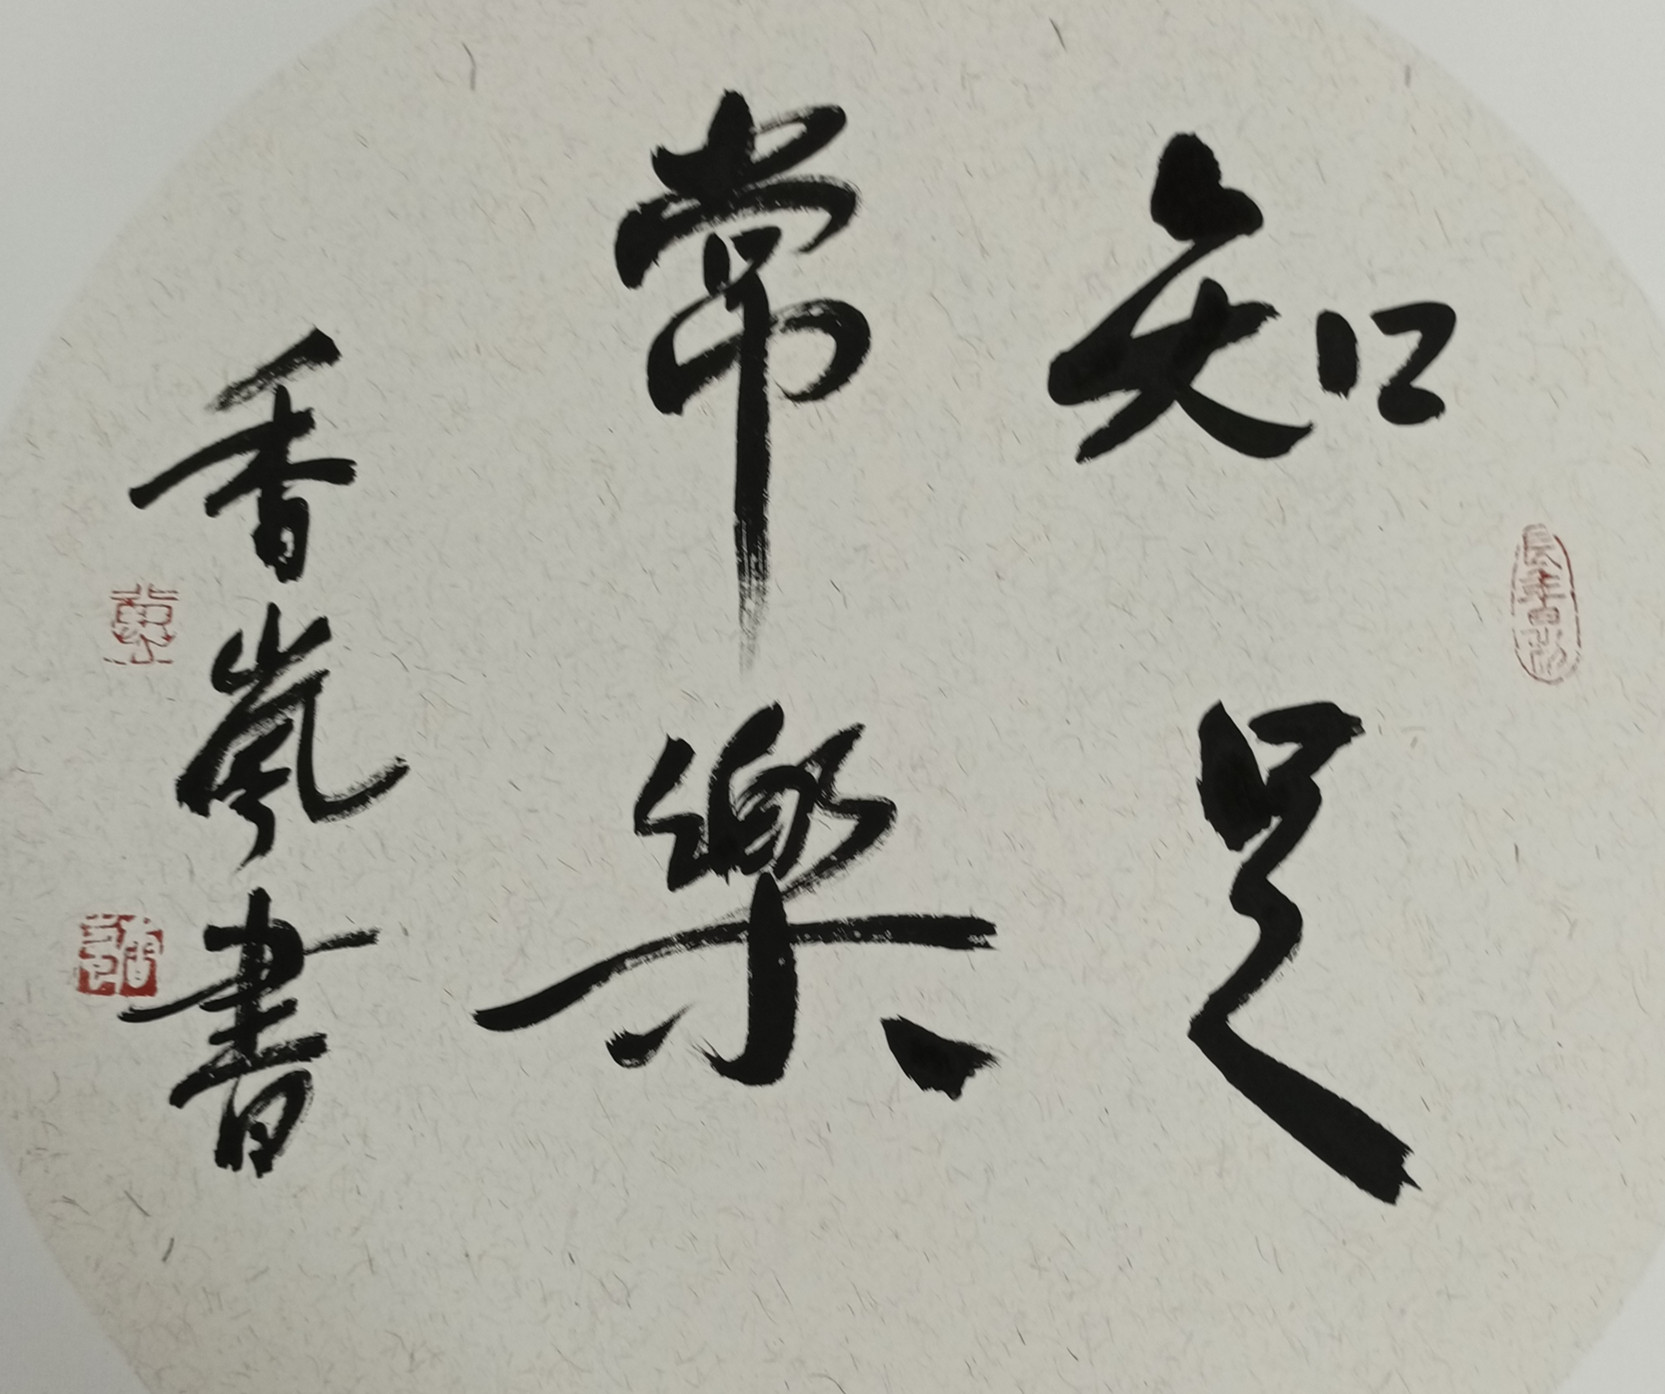 知足
常樂
香嵐書